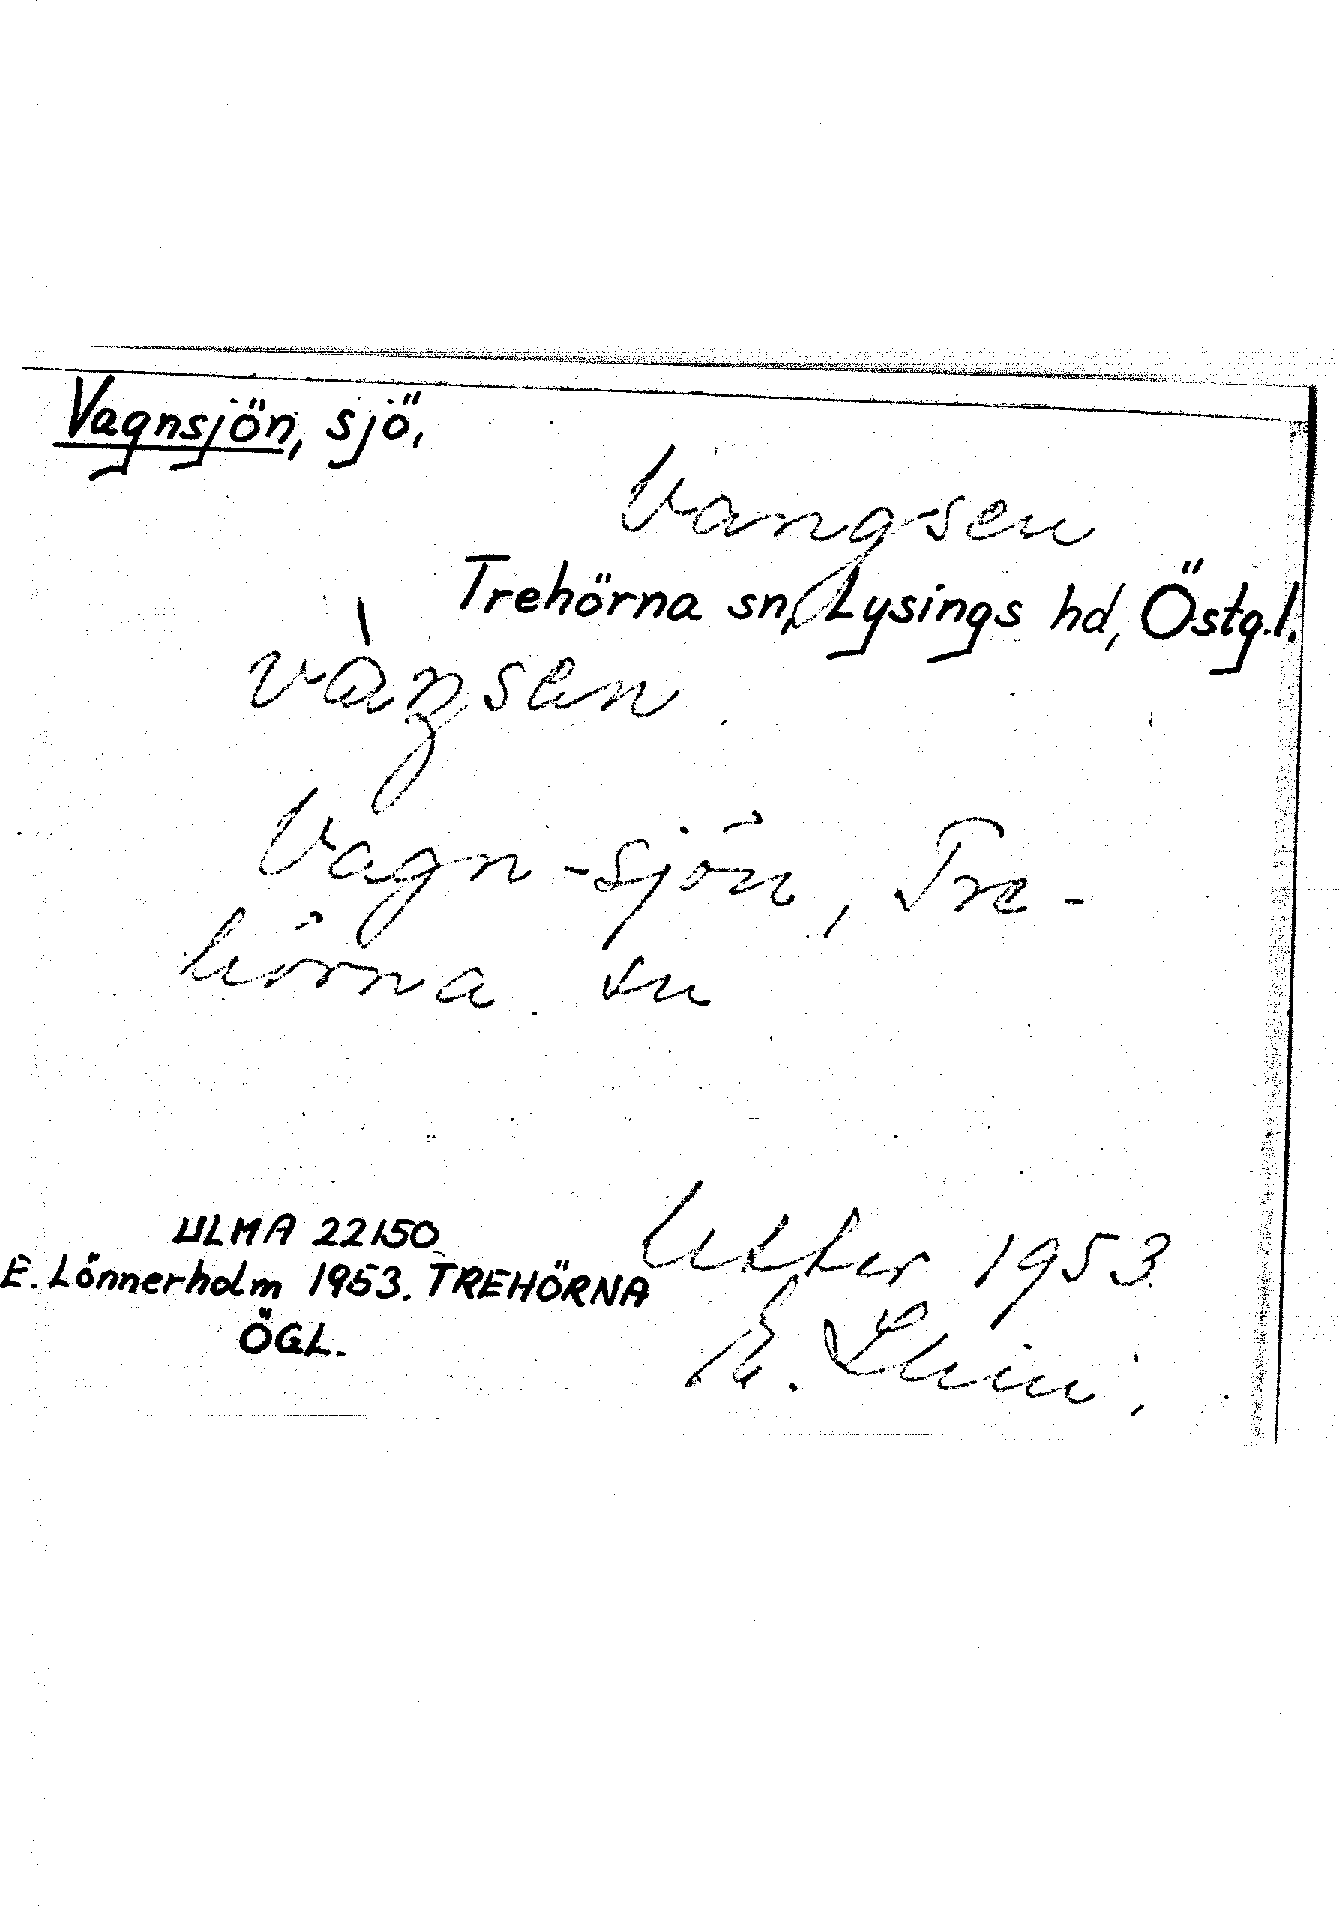 Vagnsjön, sjö,
Vangsen
Trehörna sn, Lysings hd, Östg.l.
Vagn-sjön, Tre-
hörna sn
ULMA 22150
E. Lönnerholm 1953. TREHÖRNA
ÖGL.
1953
E.